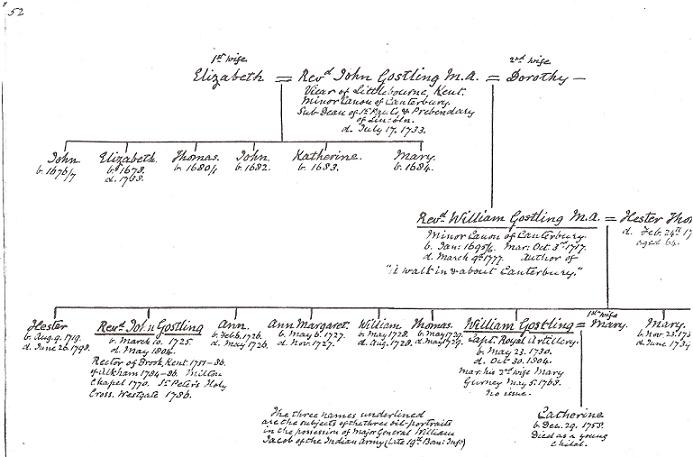 52
1st wife
2nd wife
Elizabeth = Revd John Gostling M.A. = Dorothy —
Vicar of Littlebourne, Kent.
Minor Canon of Canterbury.
Sub Dean of St Paul's, & Prebendary
of Lincoln.
d. July 17. 1733.
John. Elizabeth. Thomas. John. Katherine. Mary.
b. 1676/7 b. 1678. b. 1680/1 b. 1682. b. 1683. b. 1684.
Revd William Gostling M.A. = Hester Tho
Minor Canon of Canterbury. d. Feb. 24th 17
b. Jan: 1695/6. Mar: Oct. 3rd 1717. aged 64.
d. March 9th 1777. Author of
"A walk in & about Canterbury."
1st wife
Hester Revd. John Gostling Ann. Ann Margaret. William Thomas. William Gostling = Mary. Mary.
b. Aug. 9. 1719. b. March 10. 1725. b. Feb 6. 1726. b. May 6. 1727. b. May 1728. b. May 1729. Capt. Royal Artillery. b. Nov. 23. 173
d. June 26. 1798. d. May 1804. d. May 1726. d. Nov. 1727. d. Aug. 1728. d. May 1729. b. May 23. 1730. d. June 173
Rector of Brook, Kent. 1751-86. d. Oct. 30. 1804.
of Alkham 1754-86. Milton mar. his 2nd wife Mary
Chapel 1770. St Peter's Holy Gurney May 5. 1768.
Cross, Westgate 1786. no issue.
Catherine
b. Dec. 29. 1758.
Died as a young
child.
The three names underlined
are the subjects of the three oil-portraits
in the possession of Major General William
Jacob of the Indian Army (late 19th Bom: Inf)